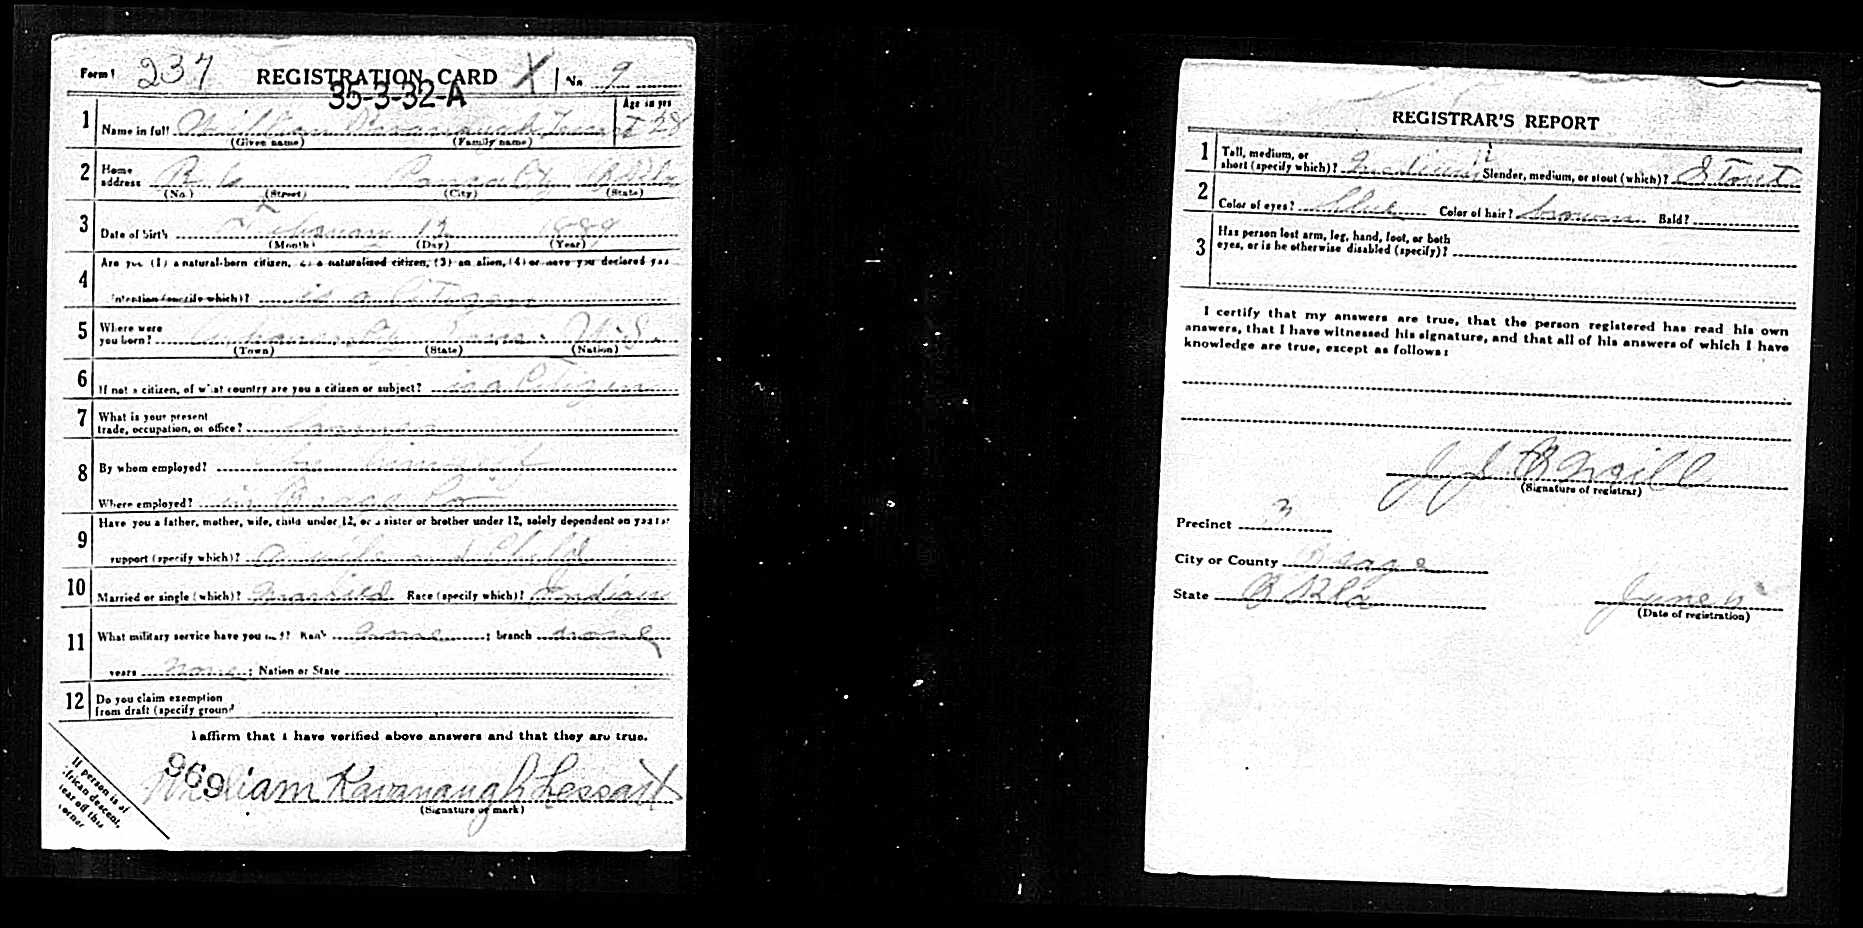 Form 1 237 REGISTRATION CARD X No. 9
35-3-32-A
Age in yrs
1 Name in full William Kavanaugh Lessart 28
(Given name) (Family name)
2 Home
address R. 6 Ponca City Okla
(No.) (Street) (City) (State)
3 Date of birth February 12 1889
(Month) (Day) (Year)
4 Are you (1) a natural-born citizen, (2) a naturalized citizen, (3) an alien, (4) or have you declared your
intention (specify which)? is a Citizen
5 Where were
you born? Arkansas City U.S.
(Town) (State) (Nation)
6 If not a citizen, of what country are you a citizen or subject? is a Citizen
7 What is your present
trade, occupation, or office?
8 By whom employed? himself
Where employed? in Osage Co
9 Have you a father, mother, wife, child under 12, or a sister or brother under 12, solely dependent on you for
support (specify which)? a wife and Child
10 Married or single (which)? Married Race (specify which)? Indian
11 What military service have you had? Rank none ; branch none
years none ; Nation or State
12 Do you claim exemption
from draft (specify ground
I affirm that I have verified above answers and that they are true.
969
William Kavanaugh Lessart
(Signature or mark)
If person is of
African descent,
tear off this
corner
REGISTRAR'S REPORT
1 Tall, medium, or
short (specify which)? Medium Slender, medium, or stout (which)? Stout
2 Color of eyes? blue Color of hair? brown Bald?
3 Has person lost arm, leg, hand, foot, or both
eyes, or is he otherwise disabled (specify)?
I certify that my answers are true, that the person registered has read his own
answers, that I have witnessed his signature, and that all of his answers of which I have
knowledge are true, except as follows:
(Signature of registrar)
Precinct 3
City or County Osage
State Okla June 5
(Date of registration)